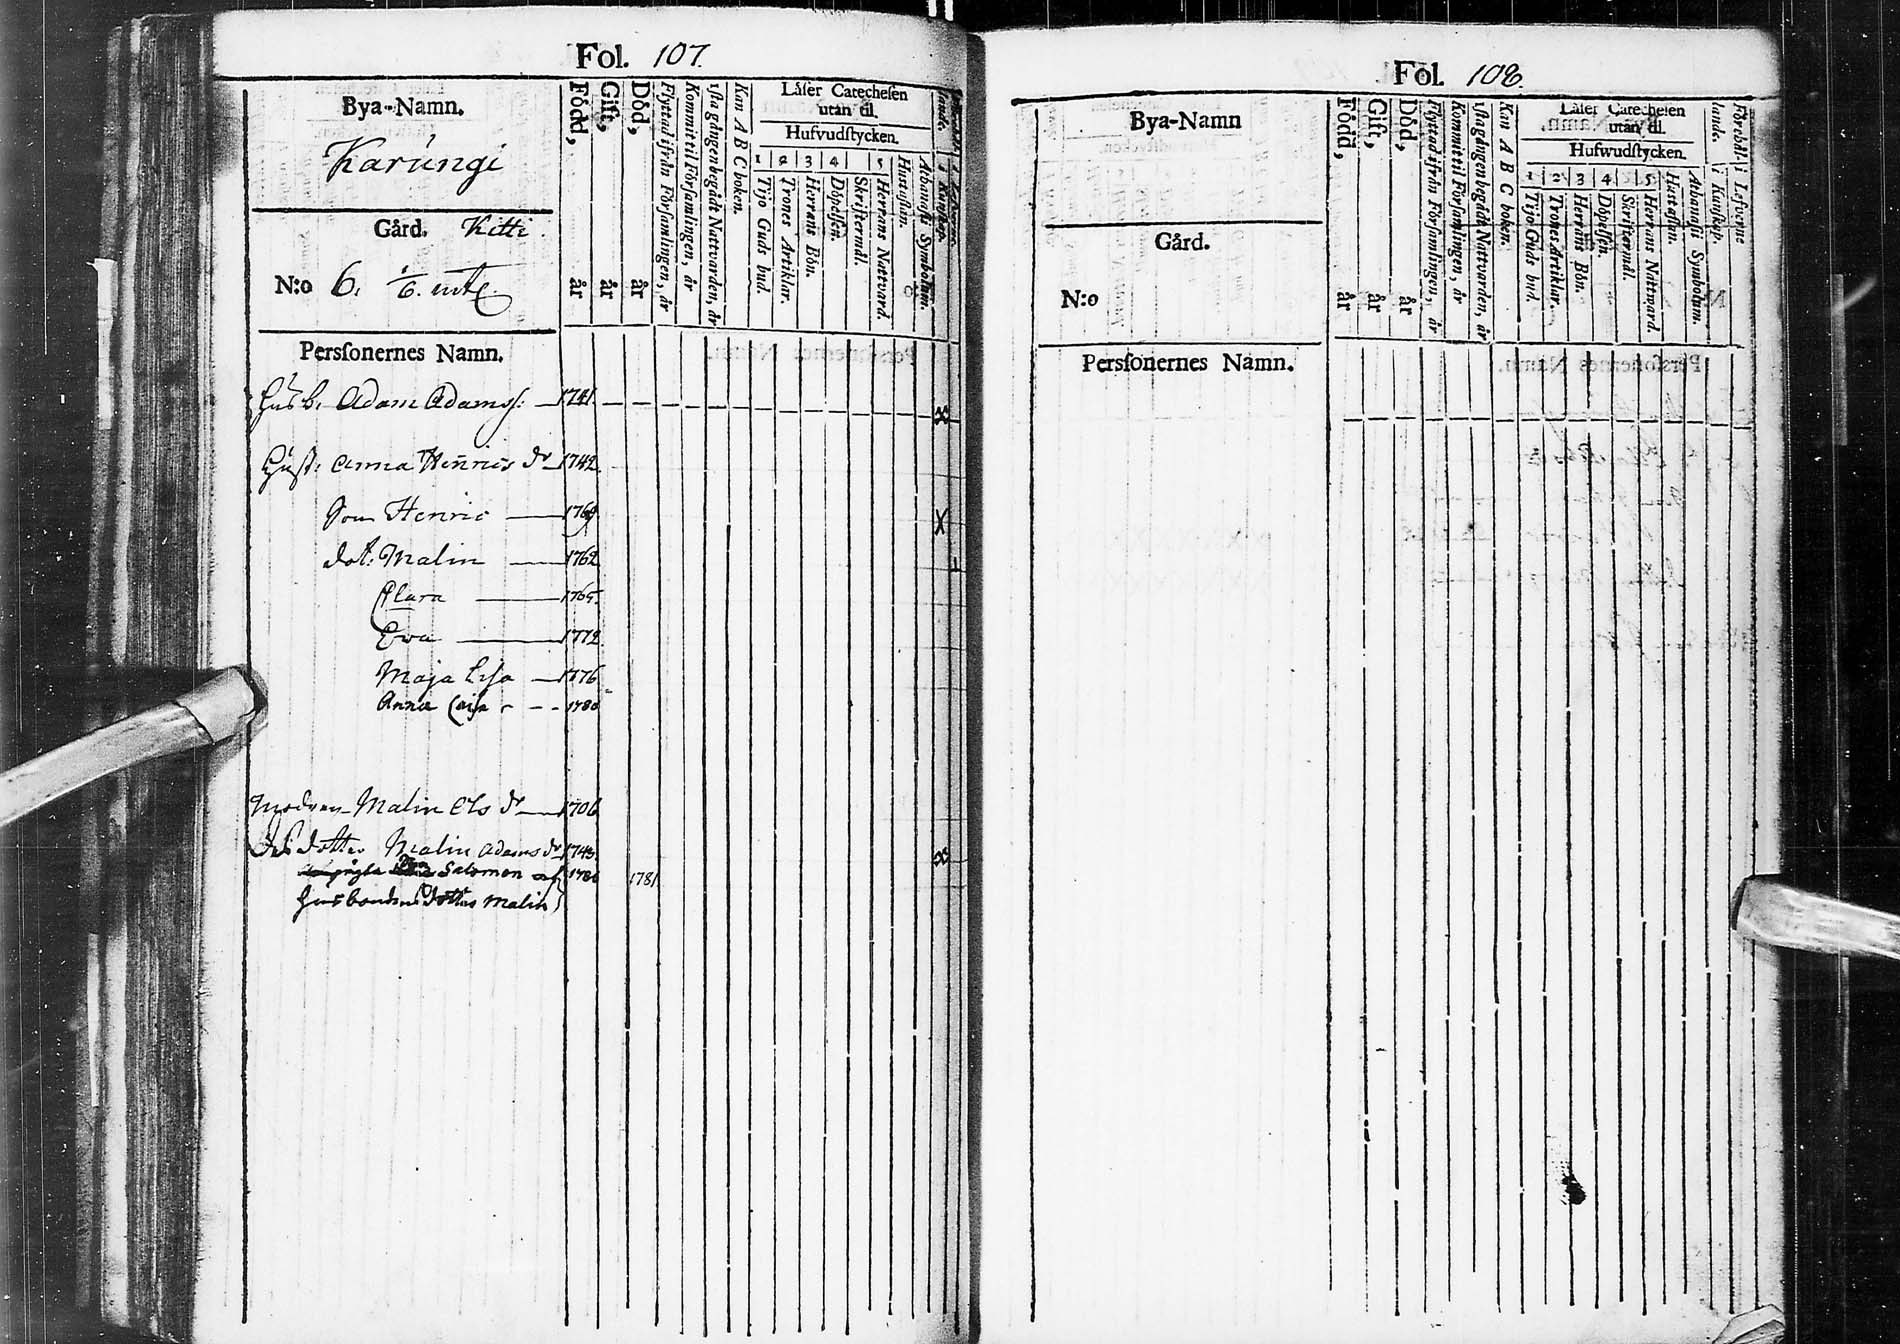 Fol. 107.
Bya-Namn.
Karungi
Gård. Kitti.
N:o 6.
Personernes Namn.
Född, år
Gift, år
Död, år
Flyttad ifrån Församlingen, år
Kommit til Församlingen, år
1sta gången begådt Nattvarden, år
Kan A B C boken.
Läser Catechesen
utan til.
Hufvudstycken.
1 2 3 4 5
Tijo Guds bud.
Trones Artiklar.
Herrans Bön.
Döpelsen.
Skriftermål.
Herrans Nattvard
Hustaflan.
Athanasii Symbolum.
Husb. Adam Adamss: 1741.
Hust: Anna Henrics dr 1742
Son Henric 1769
dot: Malin 1762
Clara 1765.
Ewa 1772
Maja Lisa 1776
Anna Caisa 1780
Modren Malin Els dr 1706
Des dotter Malin Adams dr 1743.
Salomon 1780 1781
husbondens dotters Malin
Fol. 108.
Bya-Namn
Gård.
N:o
Personernes Namn.
Född, år
Gift, år
Död, år
Flyttad ifrån Församlingen, år
Kommit til Församlingen, år
1sta gången begådt Nattvarden, år
Kan A B C boken.
Läser Catechesen
utan til.
Hufwudstycken.
1 2 3 4 5
Tijo Guds bud.
Trones Artiklar.
Herrans Bön.
Döpelsen.
Skriftermål.
Herrans Nattward
Hustaflan.
Athanasii Symbolum.
Förehål-
lande.
i Kunskap.
i Lefverne